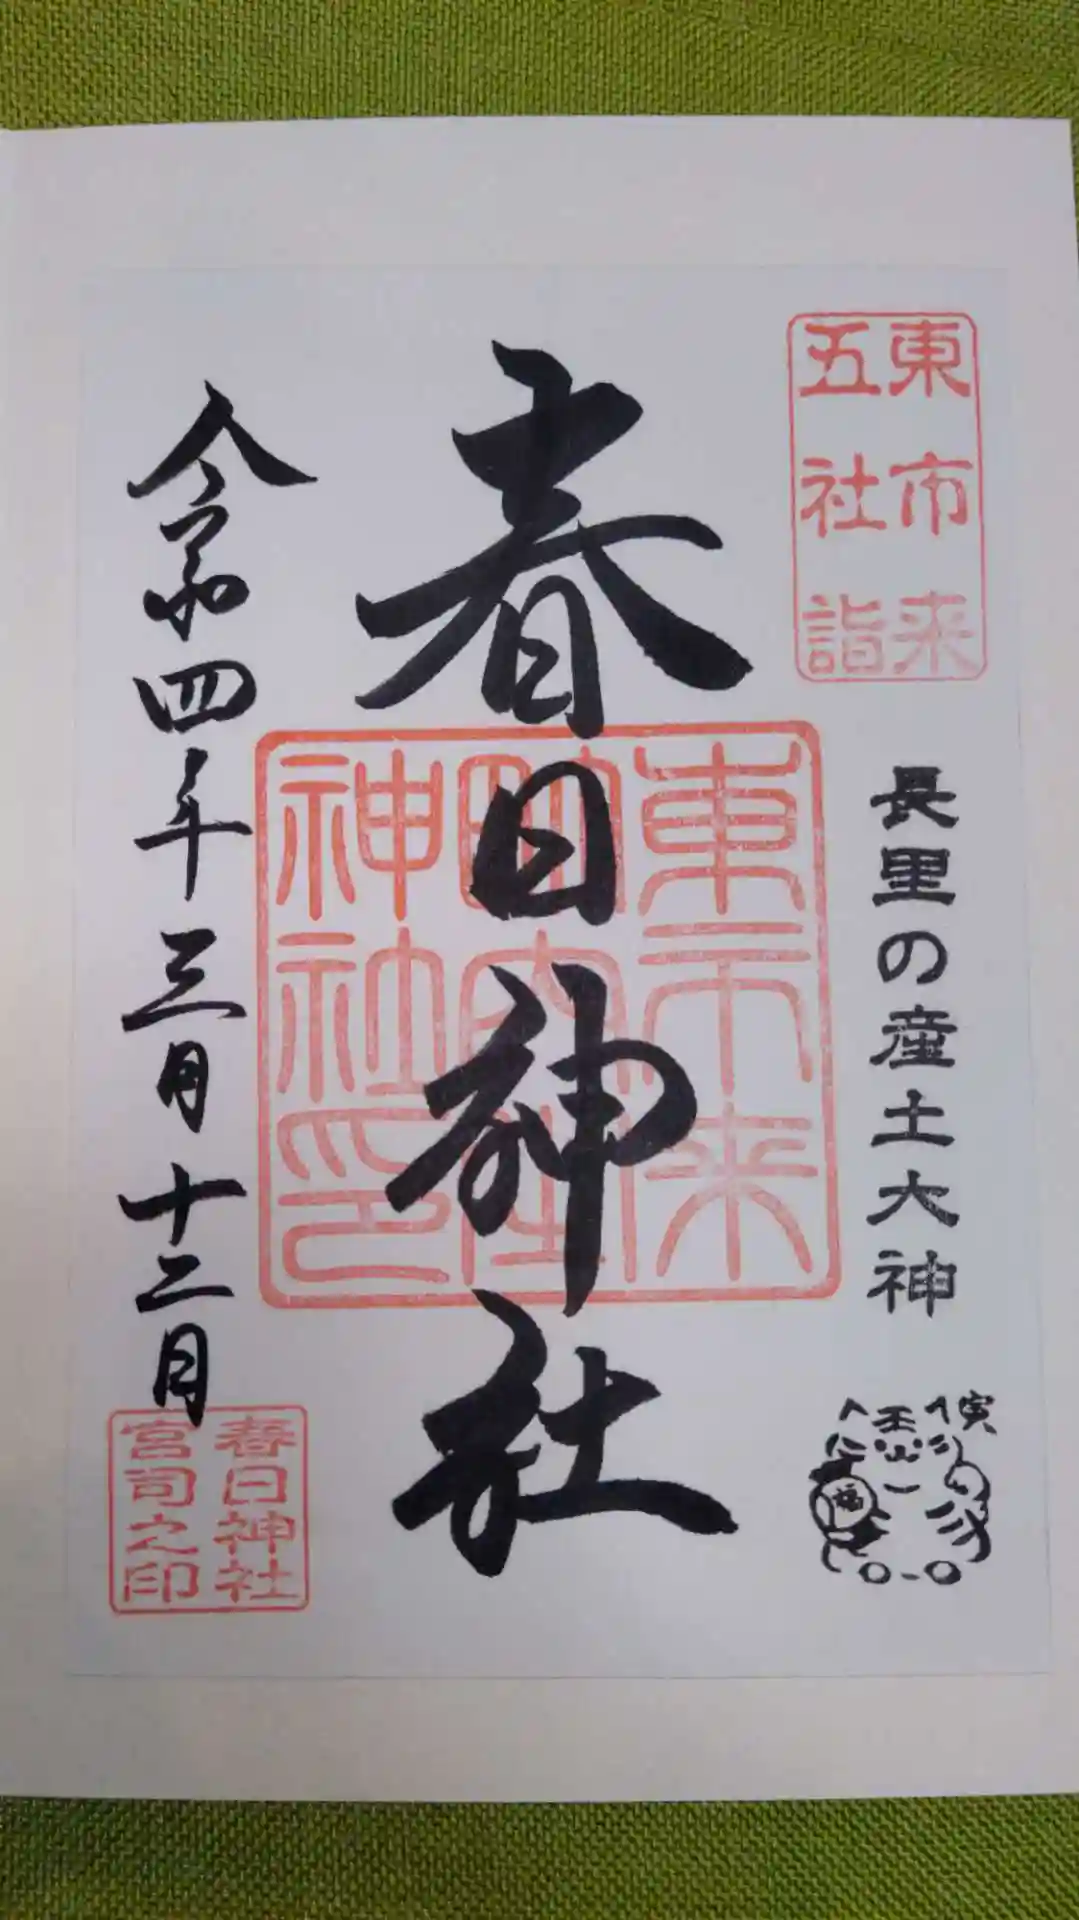 東市来
五社詣
長里の産土大神
寅
王
福
春日神社
東市来
神社印
令和四年三月十二日
春日神社
宮司之印